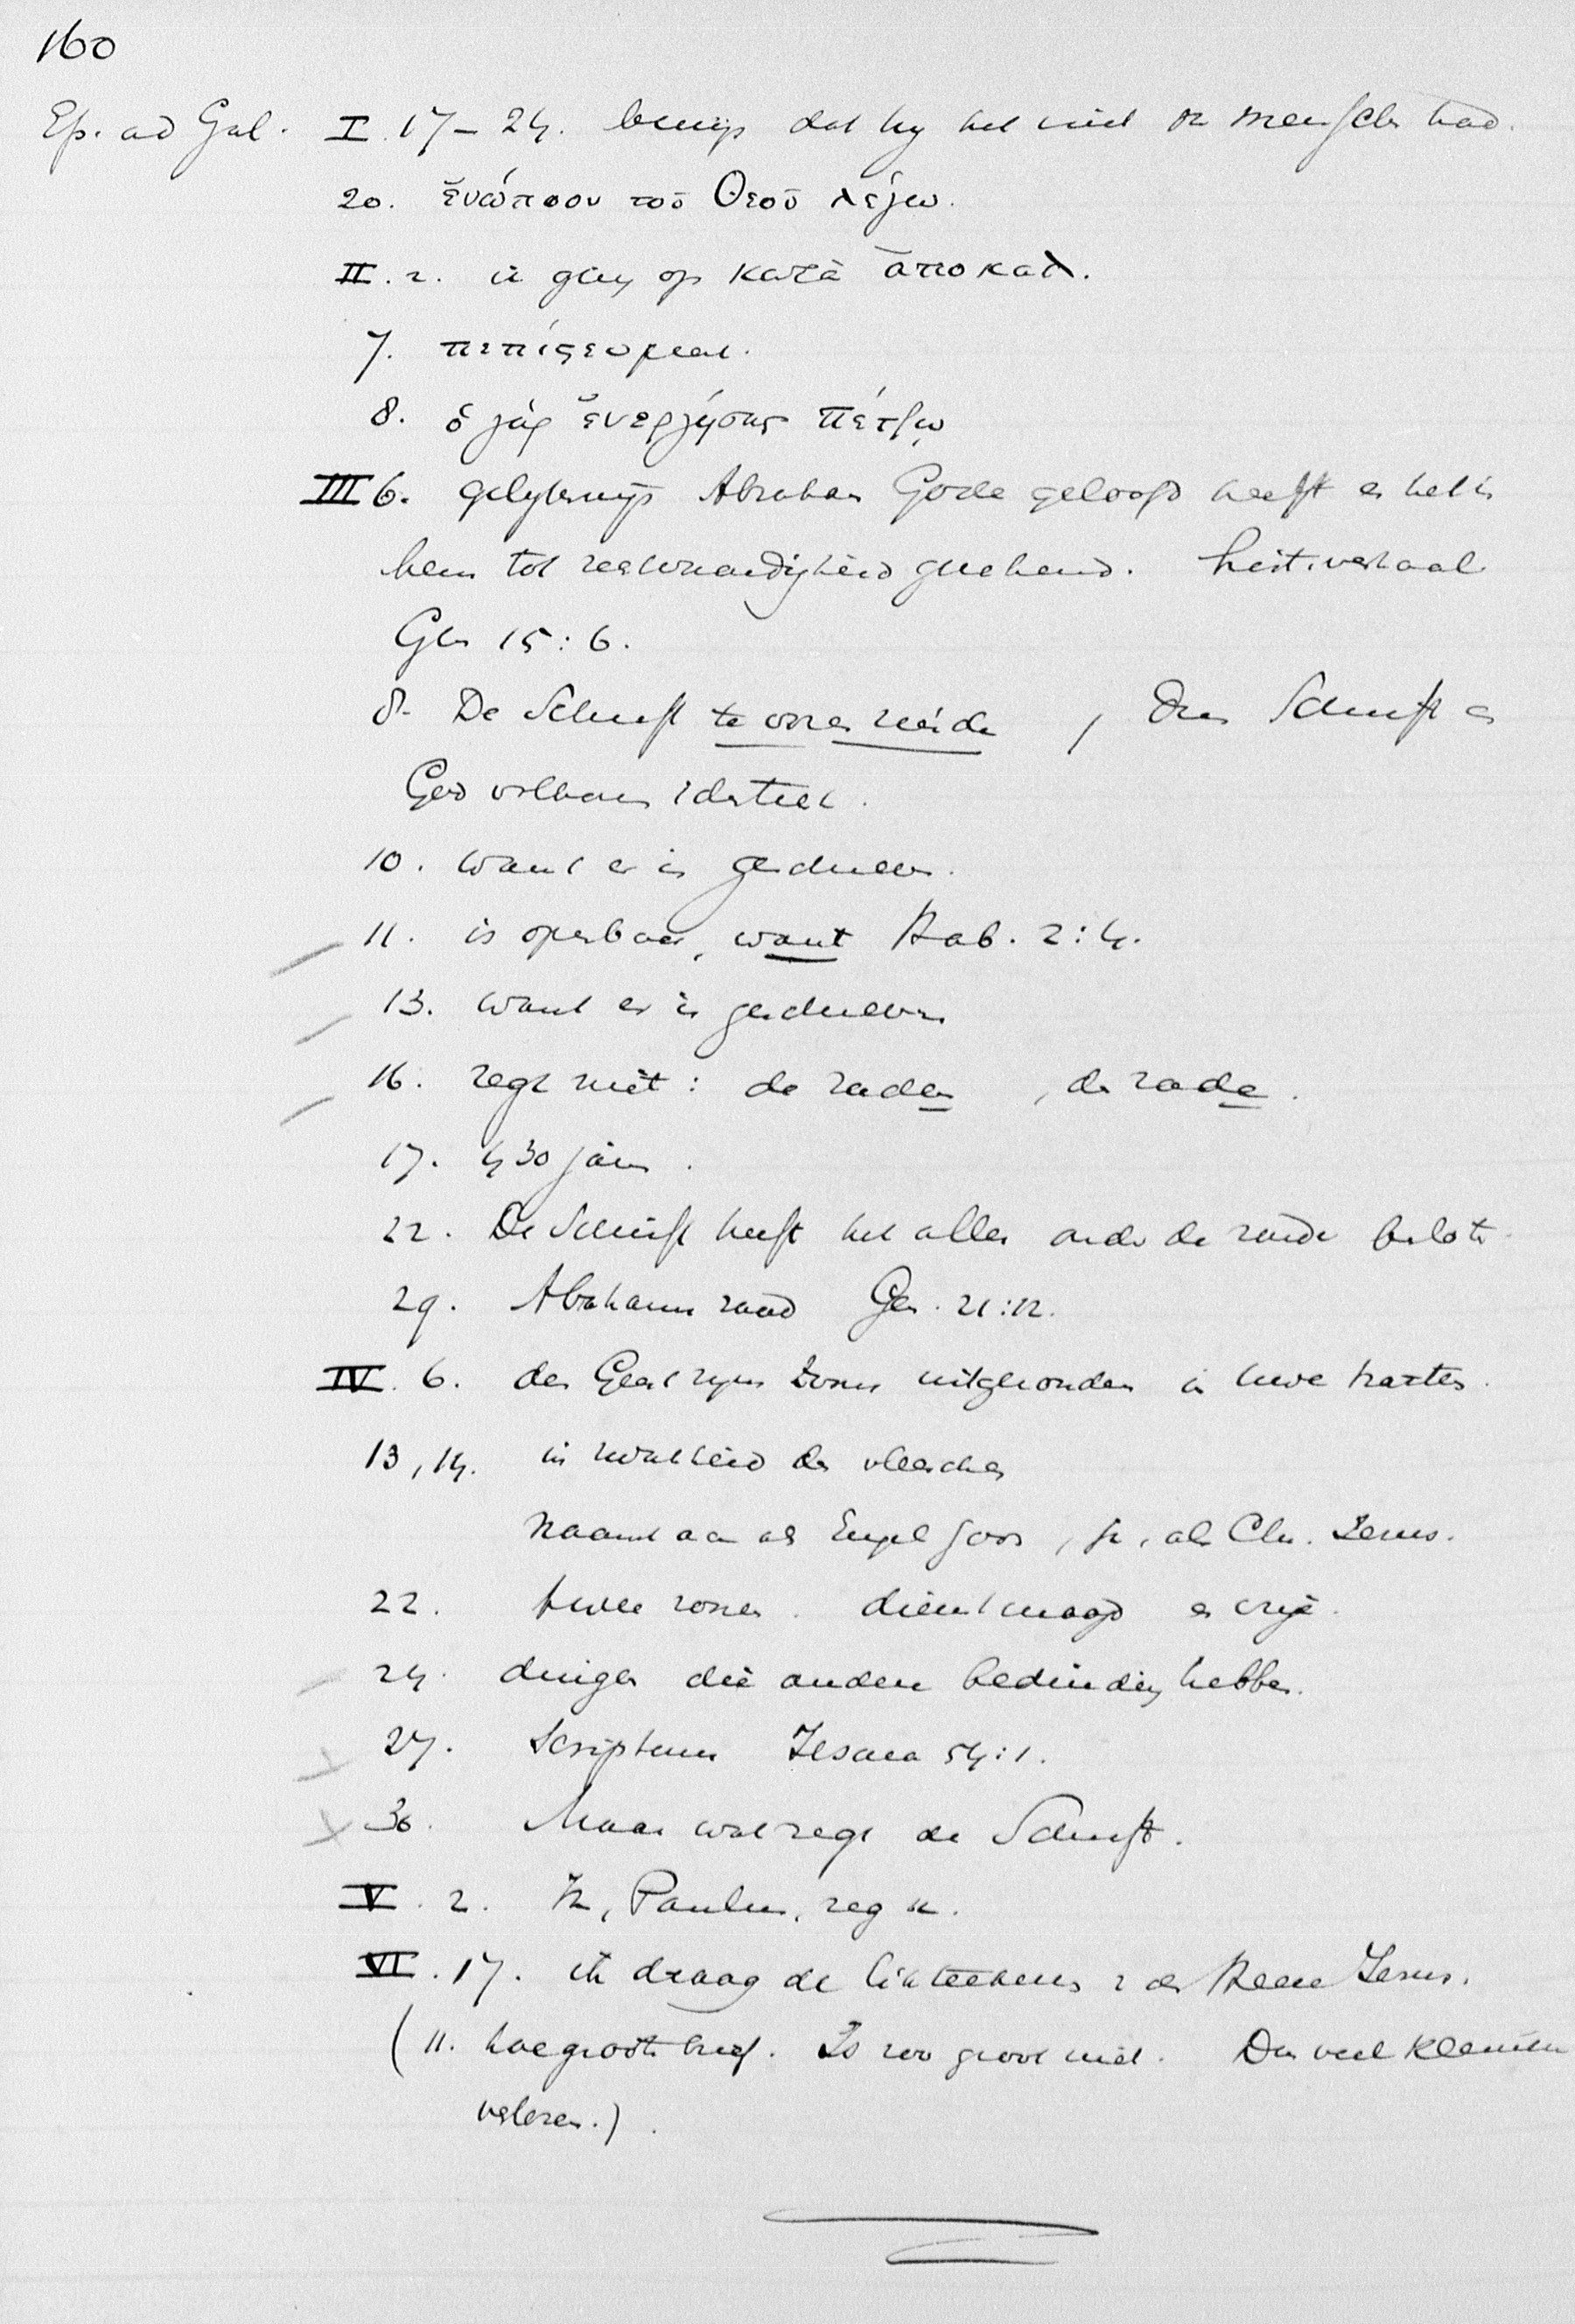 160
Ep. ad Gal. I. 17 – 24. bewijs dat hy het niet v. menschen had.
20. ἐνώπιον τοῦ Θεοῦ λέγω.
II. 2. ik ging op κατὰ ἀποκαλ.
7. πεπίςευμαι.
8. ὁ γὰρ ἐνεργήσας Πέτρῳ
III 6. gelykerwijs Abraham Gode geloofd heeft en het is
hem tot rechtvaardigheid gerekend. hist. verhaal
Gen 15 : 6.
8. De Schrift te voren ziende , Dus Schrift en
God volkomen identiek.
10. want er is geschreven.
11. is openbaar, want Hab. 2 : 4.
13. want er is geschreven
16. zegt niet : de zaden , de zade.
17. 430 jaren.
22. De Schrift heeft het alles onder de zonde besloten
29. Abrahams zaad Gen. 21:12.
IV. 6. den Geest zyns Zoons uitgezonden in uwe harten.
13, 14. in zwakheid des vleesches
naamt aan als Engel Gods, ja, als Chr. Jezus.
22. twee zonen. dienstmaagd en vrije.
24. dingen die andere bediuding hebben.
27. Scriptum Jesaia 54:1.
30. Maar wat zegt de Schrift.
V. 2. Ik, Paulus, zeg u.
VI. 17. ik draag de litteekens v den Heere Jezus.
( 11. hoe grooten brief. Is zoo groot niet. Dus veel
verloren.).